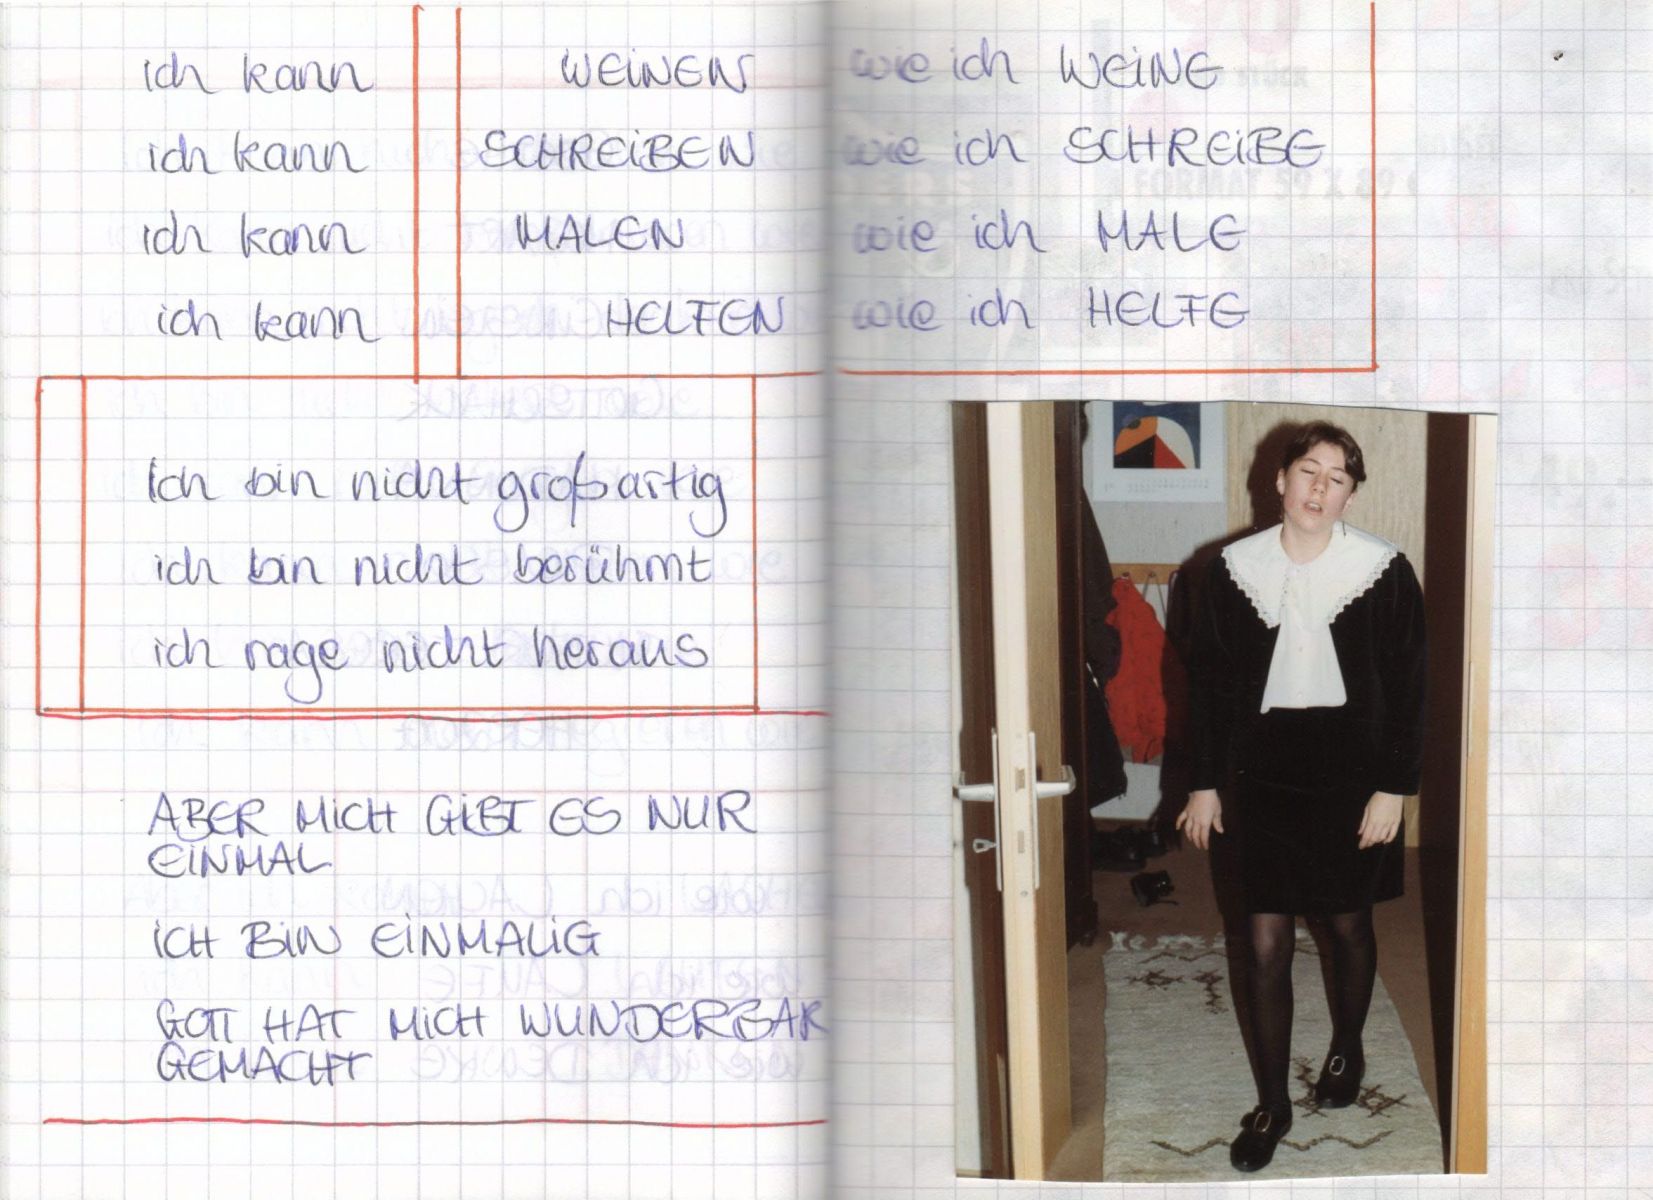 ich kann WEINEN wie ich WEINE
ich kann SCHREIBEN wie ich SCHREIBE
ich kann MALEN wie ich MALE
ich kann HELFEN wie ich HELFE
Ich bin nicht großartig
ich bin nicht berühmt
ich rage nicht heraus
ABER MICH GIBT ES NUR
EINMAL
ICH BIN EINMALIG
GOTT HAT MICH WUNDERBAR
GEMACHT
FORMAT 59 X 89